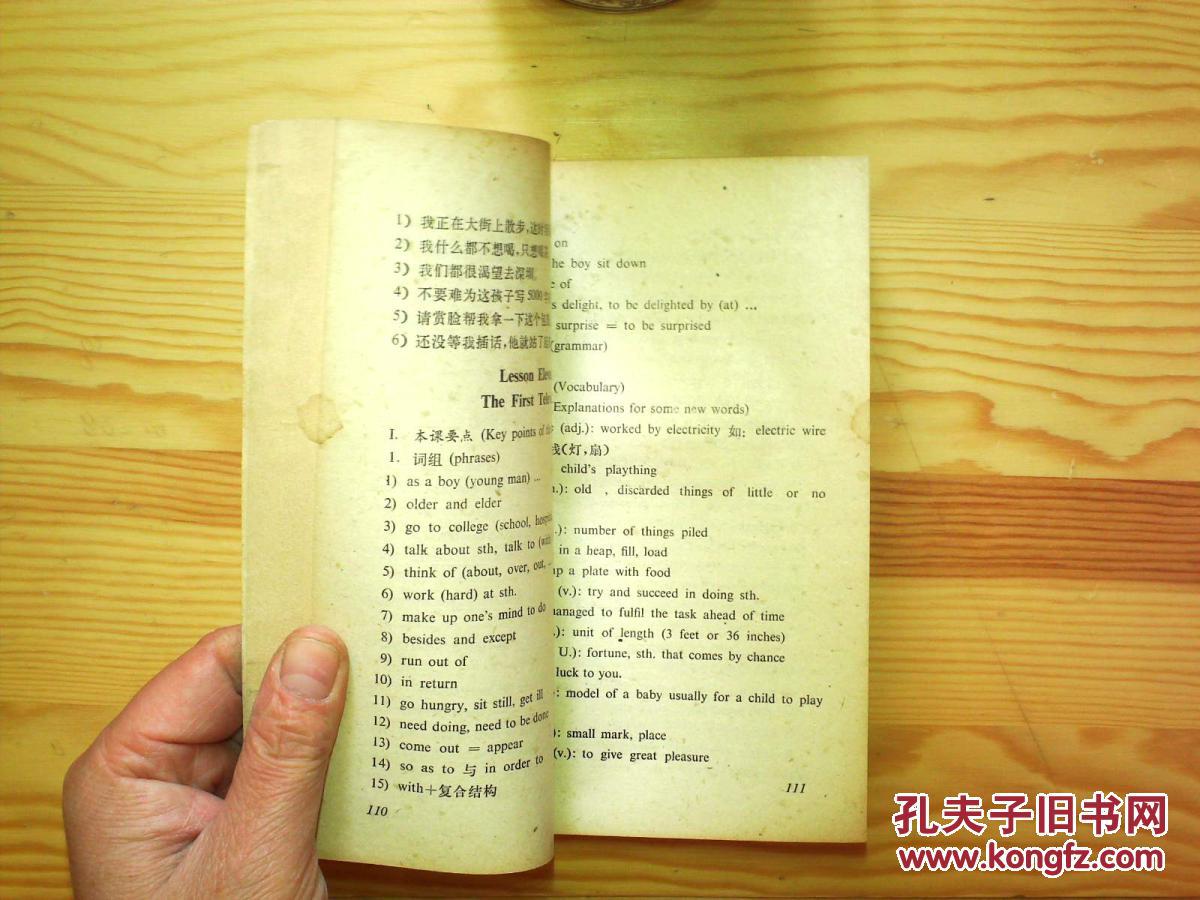 1) 我正在大街上散步,这时
2) 我什么都不想喝,只想喝
3) 我们都很渴望去深圳.
4) 不要难为这孩子写5000
5) 请赏脸帮我拿一下这个
6) 还没等我插话,他就站了
Lesson
The First
I. 本课要点 (Key points of
1. 词组 (phrases)
1) as a boy (young man) ...
2) older and elder
3) go to college (school,
4) talk about sth, talk to
5) think of (about, over, out,
6) work (hard) at sth.
7) make up one's mind to do
8) besides and except
9) run out of
10) in return
11) go hungry, sit still, get ill
12) need doing, need to be done
13) come out = appear
14) so as to 与 in order to
15) with+复合结构
110
on
boy sit down
of
delight, to be delighted by (at) ...
surprise = to be surprised
(grammar)
(Vocabulary)
Explanations for some new words)
(adj.): worked by electricity 如: electric wire
(灯,扇)
child's plaything
old , discarded things of little or no
number of things piled
in a heap, fill, load
a plate with food
(v.): try and succeed in doing sth.
managed to fulfil the task ahead of time
unit of length (3 feet or 36 inches)
U.): fortune, sth. that comes by chance
luck to you.
: model of a baby usually for a child to play
): small mark, place
(v.): to give great pleasure
111
孔夫子旧书网
www.kongfz.com